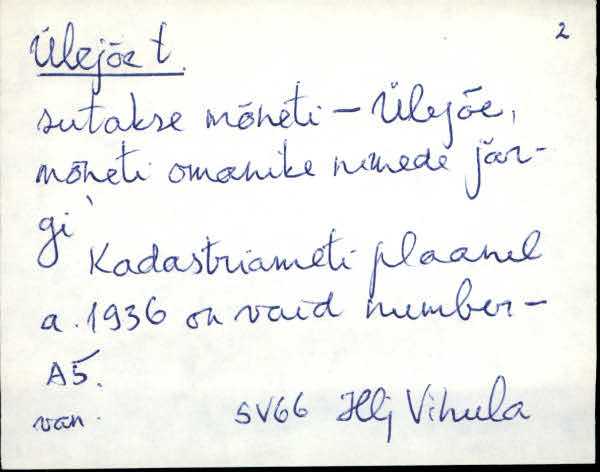 2
Ülejõe t.
sutakse mõneti – Ülejõe,
mõneti omanike nimede jär-
gi
Kadastriameti plaanel
a. 1936 on vaid number –
A5.
van. SV66 Hlj Vihula